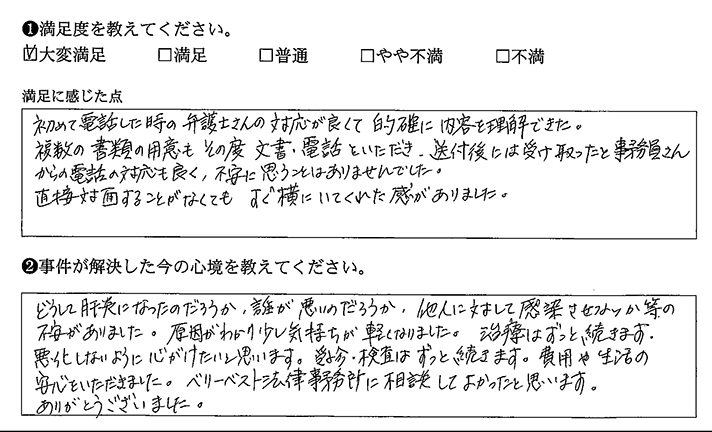 ❶満足度を教えてください。
☑大変満足 □満足 □普通 □やや不満 □不満
満足に感じた点
初めて電話した時の弁護士さんの対応が良くて的確に内容を理解できた。
複数の書類の用意もその度文書・電話といただき、送付後には受け取ったと事務員さん
からの電話の対応も良く、不安に思うことはありませんでした。
直接対面することがなくても すぐ横にいてくれた感がありました。
❷事件が解決した今の心境を教えてください。
どうして肝炎になったのだろうか、誰が悪いのだろうか、他人に対して感染させないか等の
不安がありました。原因がわかり少し気持ちが軽くなりました。治療はずっと続きます。
悪化しないように心がけたいと思います。受診・検査はずっと続きます。費用や生活の
安心をいただきました。ベリーベスト法律事務所に相談してよかったと思います。
ありがとうございました。